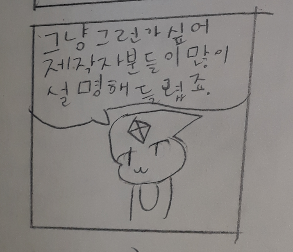 그냥 그런가 싶어
제작자분들이 많이
설명해 드렸죠.